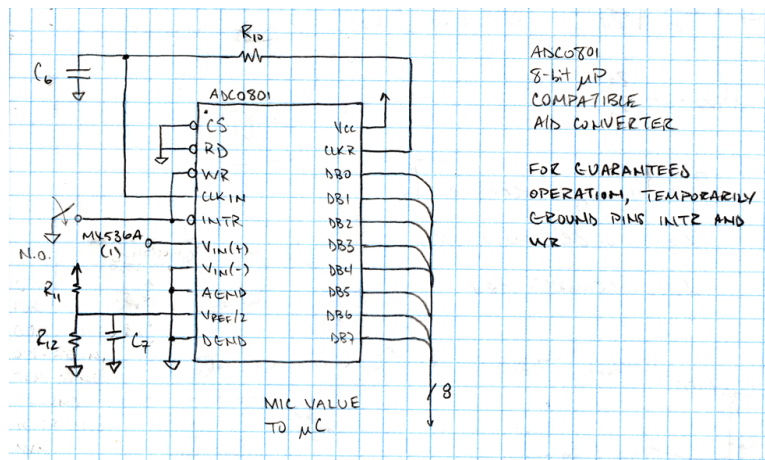 R10
C6
ADC0801
CS
RD
WR
CLKIN
INTR
VIN(+)
VIN(-)
AGND
VREF/2
DGND
VCC
CLKR
DB0
DB1
DB2
DB3
DB4
DB5
DB6
DB7
N.O.
MX536A
(1)
R11
R12
C7
8
MIC VALUE
TO μC
ADC0801
8-bit μP
COMPATIBLE
A/D CONVERTER
FOR GUARANTEED
OPERATION, TEMPORARILY
GROUND PINS INTR AND
WR